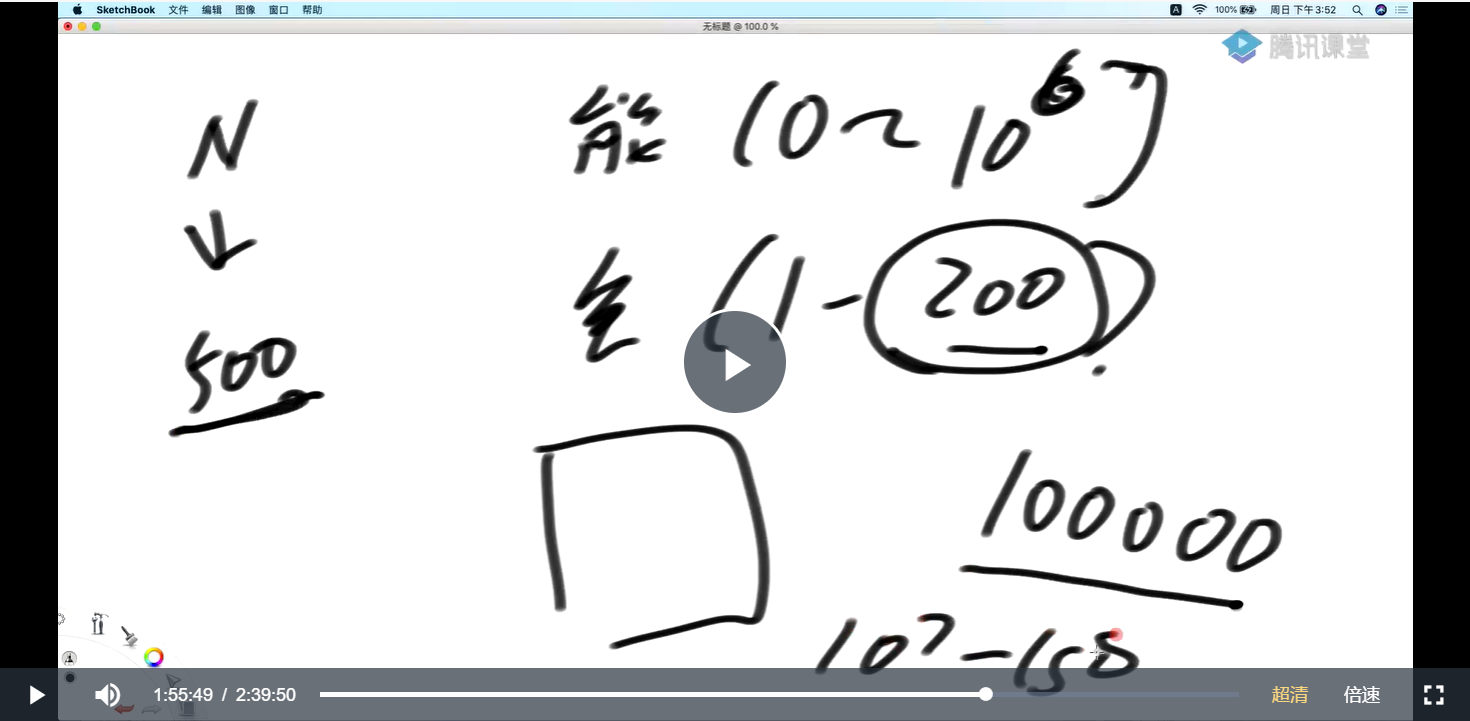 SketchBook 文件 编辑 图像 窗口 帮助
A 100% 周日 下午3:52
无标题 @ 100.0 %
腾讯课堂
N
能 (0~10^6]
(1-200)
500
100000
10^7-
1:55:49 / 2:39:50 超清 倍速